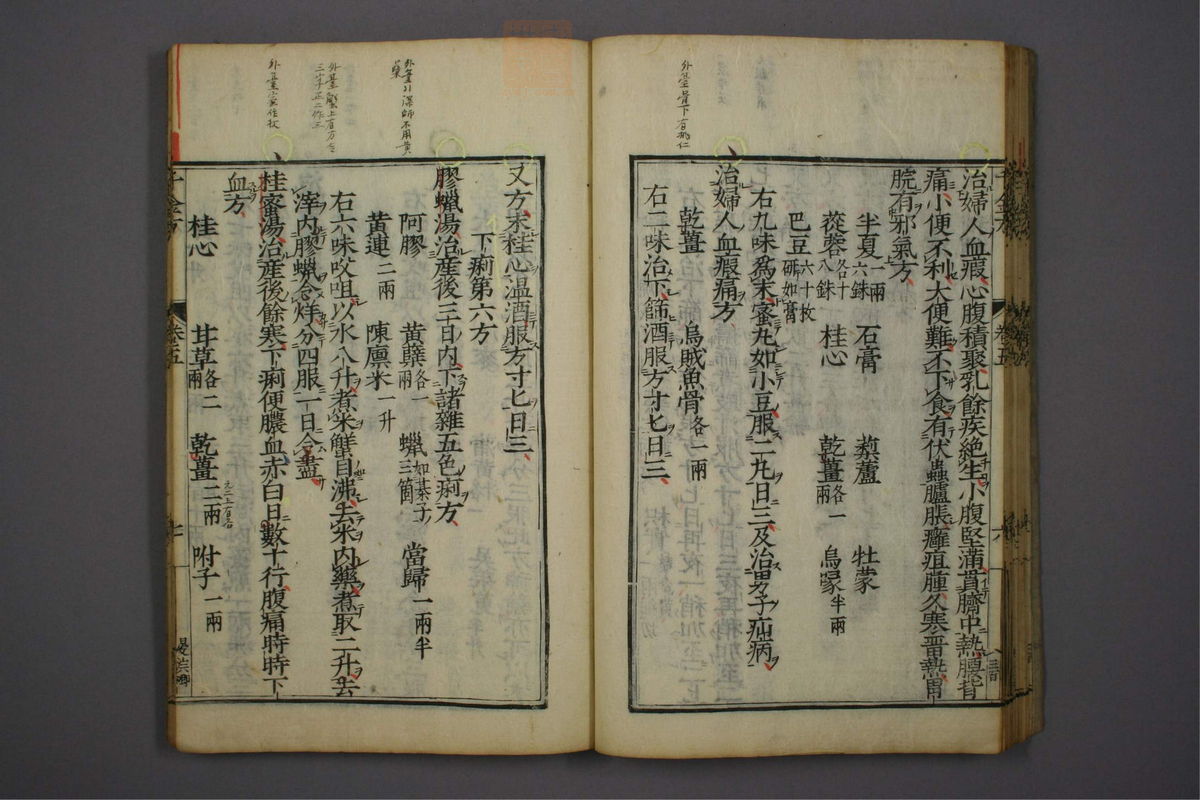 治婦人血瘕心腹積聚乳餘疾絶生小腹堅滿貫臍中熱腰背
痛小便不利大便難不下食有伏蟲臚脹癰疽腫久寒畱熱胃
脘有邪氣方
半夏一兩六銖 石膏 藜蘆 牡蒙
蓯蓉各十八銖 桂心 乾薑各一兩 烏喙半兩
巴豆六十枚硏如膏
右九味爲末蜜丸如小豆服二丸日三及治男子疝病
治婦人血瘕痛方
乾薑 烏賊魚骨各一兩
右二味治下篩酒服方寸匕日三
外臺骨下有桃仁
又方末桂心温酒服方寸匕日三
下痢第六方
膠蠟湯治産後三十日内下諸雜五色痢方
阿膠 黃蘗各一兩 蠟如碁子三箇 當歸一兩半
黃連二兩 陳廪米一升
右六味㕮咀以水八升煮米蟹目沸去米内藥煮取二升去
滓内膠蠟令烊分四服一日令盡
桂蜜湯治産後餘寒下痢便膿血赤白日數十行腹痛時時下
血方
桂心 甘草各二兩 乾薑二兩 附子一兩
外臺引深師不用黃
蘗
千金方
卷五